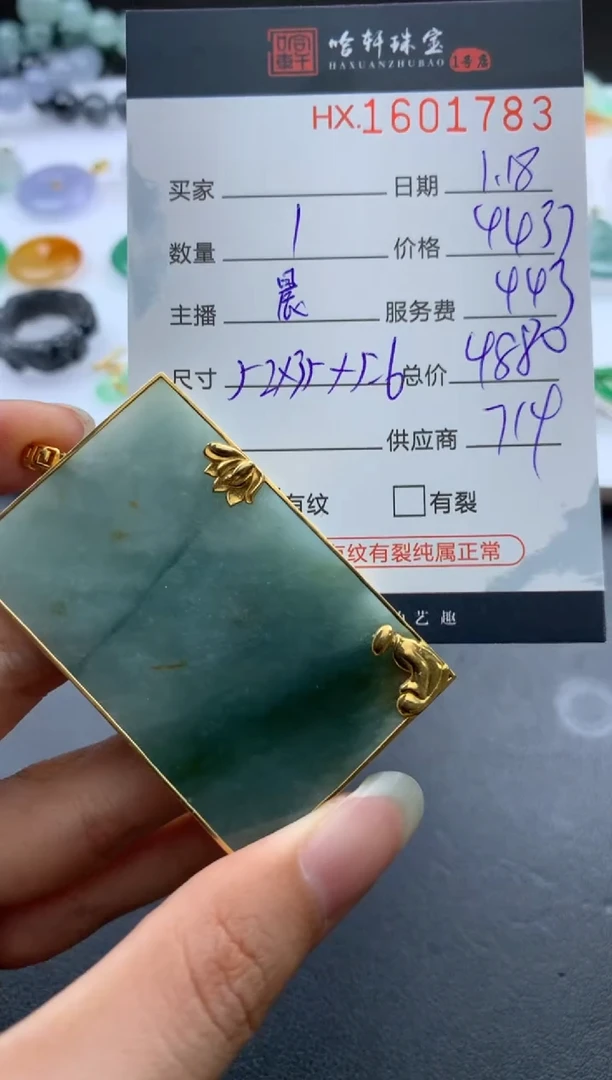 哈轩珠宝 1号店
HAXUANZHUBAO
HX.1601783
买家 日期 1.18
数量 1 价格 4437
主播 晨 服务费 443
尺寸 52×35×5.6 总价 4880
供应商 714
有纹 有裂
有纹有裂纯属正常
艺趣